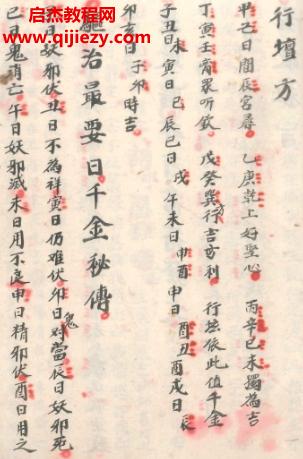 启杰教程网
www.qijiejy.com
行壇方
甲己日開辰宮尋 乙庚乾上好堅心 丙辛巳未獨為吉
丁寅壬宵眾听欽 戊癸巽方行吉利 行壇依此值千金
子丑日未寅日巳辰巳日戌午未日申酉申日酉丑酉戌日辰
卯亥日子卯時吉
驅治最要日千金秘傳
子日妖邪伏丑日不為祥寅日仍难伏卯日鬼對當辰日妖邪死
巳日鬼肖亡午日妖邪滅未日用不良申日精邪伏酉日用之